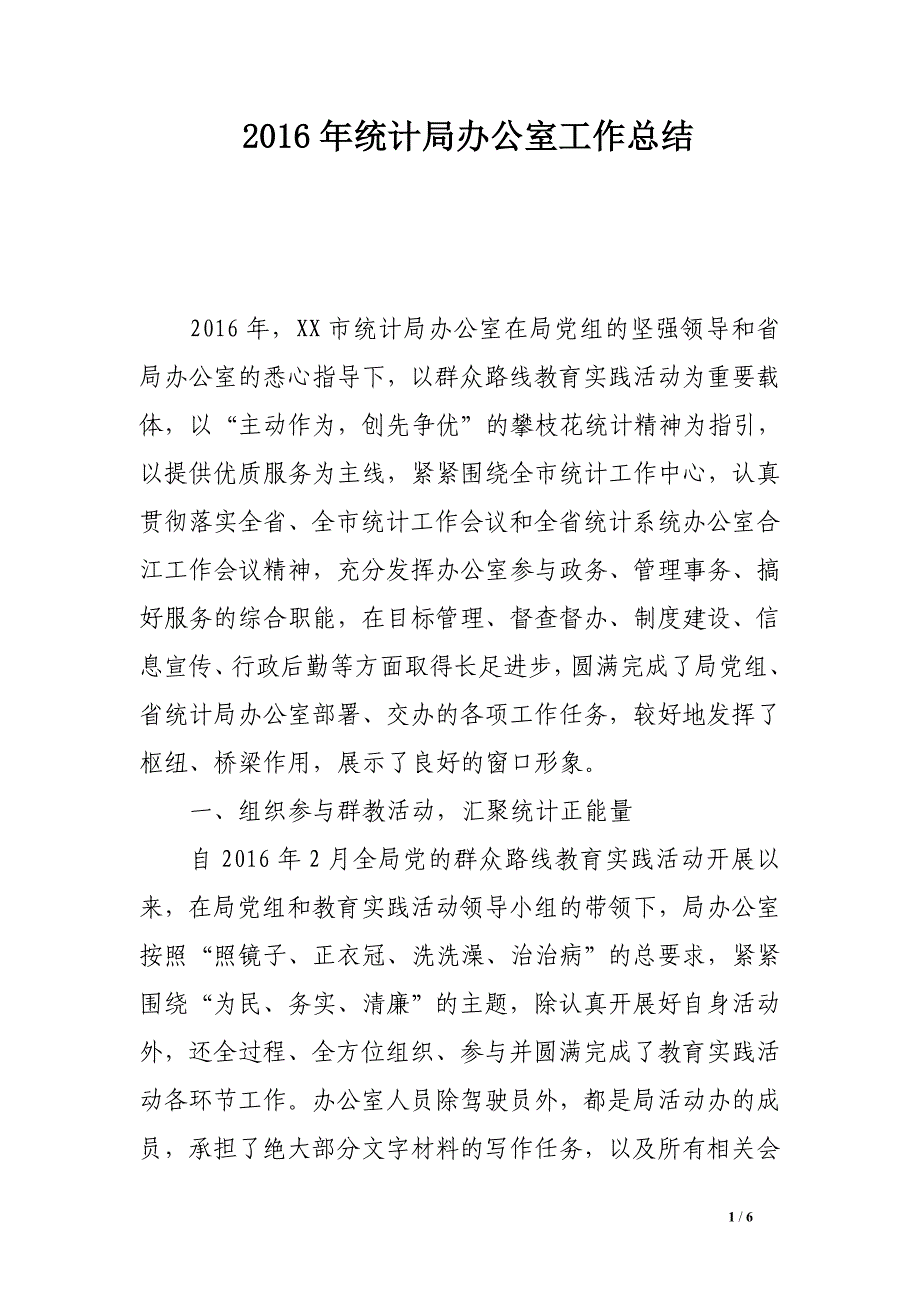 2016 年统计局办公室工作总结
2016 年，XX 市统计局办公室在局党组的坚强领导和省
局办公室的悉心指导下，以群众路线教育实践活动为重要载
体，以“主动作为，创先争优”的攀枝花统计精神为指引，
以提供优质服务为主线，紧紧围绕全市统计工作中心，认真
贯彻落实全省、全市统计工作会议和全省统计系统办公室合
江工作会议精神，充分发挥办公室参与政务、管理事务、搞
好服务的综合职能，在目标管理、督查督办、制度建设、信
息宣传、行政后勤等方面取得长足进步，圆满完成了局党组、
省统计局办公室部署、交办的各项工作任务，较好地发挥了
枢纽、桥梁作用，展示了良好的窗口形象。
一、组织参与群教活动，汇聚统计正能量
自 2016 年 2 月全局党的群众路线教育实践活动开展以
来，在局党组和教育实践活动领导小组的带领下，局办公室
按照“照镜子、正衣冠、洗洗澡、治治病”的总要求，紧紧
围绕“为民、务实、清廉”的主题，除认真开展好自身活动
外，还全过程、全方位组织、参与并圆满完成了教育实践活
动各环节工作。办公室人员除驾驶员外，都是局活动办的成
员，承担了绝大部分文字材料的写作任务，以及所有相关会
1 / 6